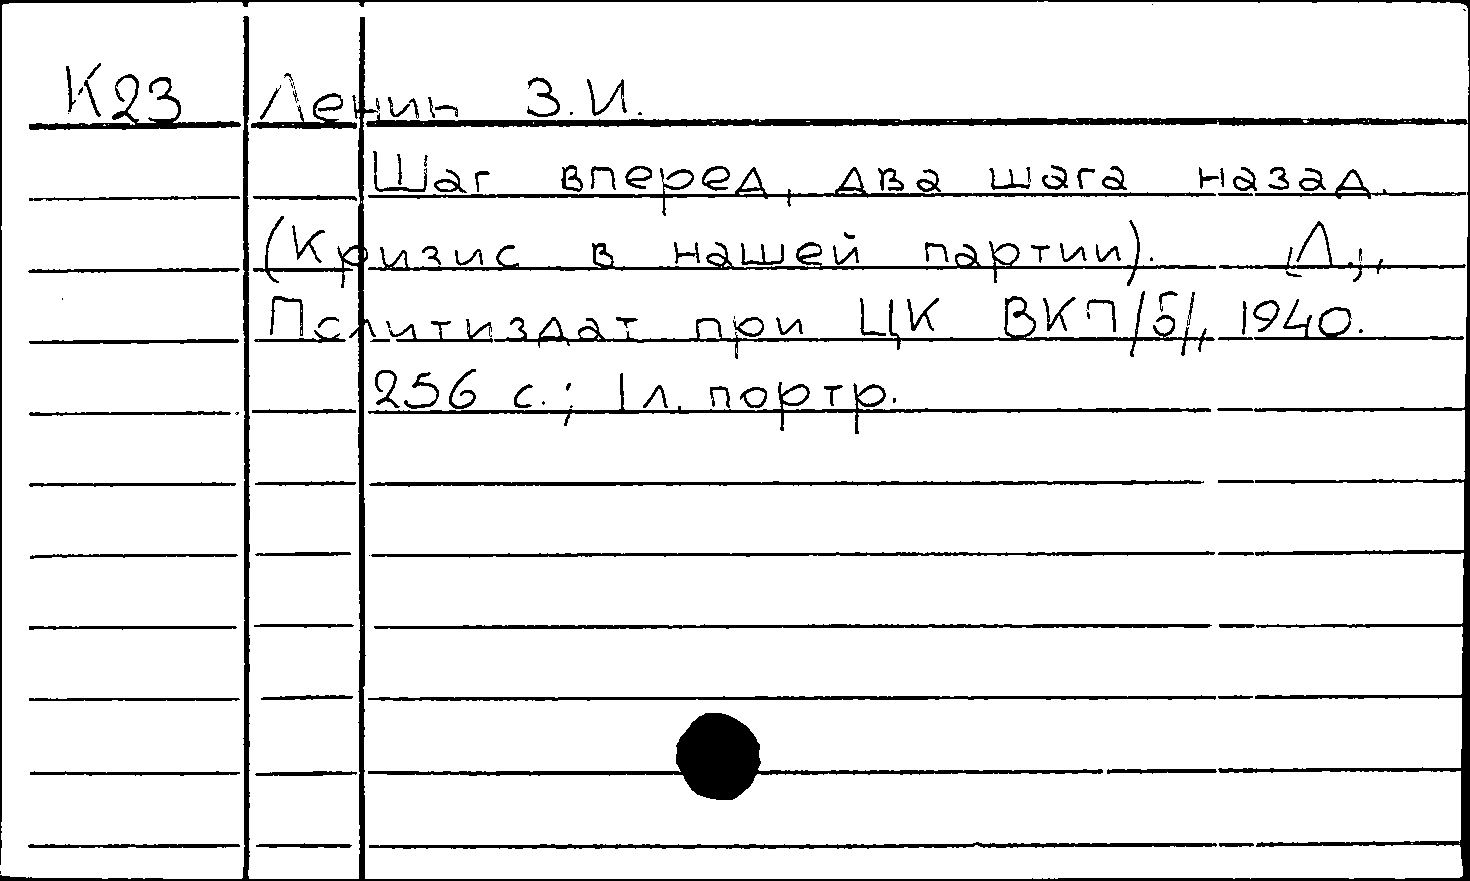 К23 Ленин З.И.
Шаг вперед, два шага назад.
(Кризис в нашей партии). Л.,
Политиздат при ЦК ВКП/б/, 1940.
256 с.; 1л. портр.